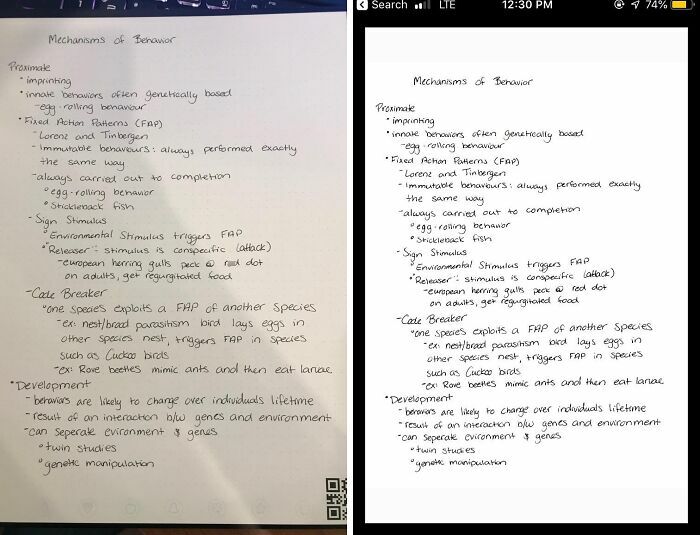 Mechanisms of Behavior
Proximate
• imprinting
• innate behaviors often genetically based
- egg-rolling behaviour
• Fixed Action Patterns (FAP)
- Lorenz and Tinbergen
- Immutable behaviours: always performed exactly
the same way
- always carried out to completion
° egg-rolling behavior
° Stickleback fish
- Sign Stimulus
° Environmental Stimulus triggers FAP
° "Releaser": stimulus is conspecific (attack)
- european herring gulls peck @ red dot
on adults, get regurgitated food
- Code Breaker
° one species exploits a FAP of another species
- ex: nest/brood parasitism bird lays eggs in
other species nest, triggers FAP in species
such as Cuckoo birds
- ex: Rove beetles mimic ants and then eat larvae
• Development
- behaviors are likely to change over individuals lifetime
- result of an interaction b/w genes and environment
- can seperate evironment & genes
° twin studies
° genetic manipulation
Search LTE 12:30 PM 74%
Mechanisms of Behavior
Proximate
• imprinting
• innate behaviors often genetically based
- egg-rolling behaviour
• Fixed Action Patterns (FAP)
- Lorenz and Tinbergen
- Immutable behaviours: always performed exactly
the same way
- always carried out to completion
° egg-rolling behavior
° Stickleback fish
- Sign Stimulus
° Environmental Stimulus triggers FAP
° "Releaser": stimulus is conspecific (attack)
- european herring gulls peck @ red dot
on adults, get regurgitated food
- Code Breaker
° one species exploits a FAP of another species
- ex: nest/brood parasitism bird lays eggs in
other species nest, triggers FAP in species
such as Cuckoo birds
- ex: Rove beetles mimic ants and then eat larvae
• Development
- behaviors are likely to change over individuals lifetime
- result of an interaction b/w genes and environment
- can seperate evironment & genes
° twin studies
° genetic manipulation